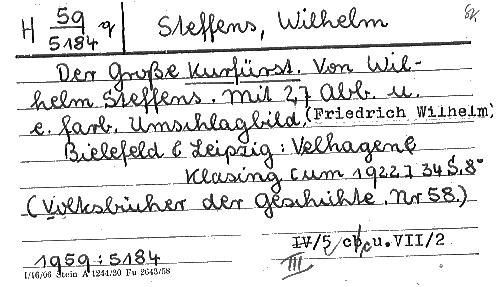 H 59/5184 q Steffens, Wilhelm
Der Große Kurfürst. Von Wil-
helm Steffens. Mit 27 Abb. u.
e. farb. Umschlagbild. (Friedrich Wilhelm)
Bielefeld & Leipzig: Velhagen &
Klasing (um 1922) 34 S. 8°
(Volksbücher der Geschichte. Nr 58.)
IV/5 cb, c u. VII/2
III
1959:5184
1/16/06 Stein A 1244/30 Fu 2643/58